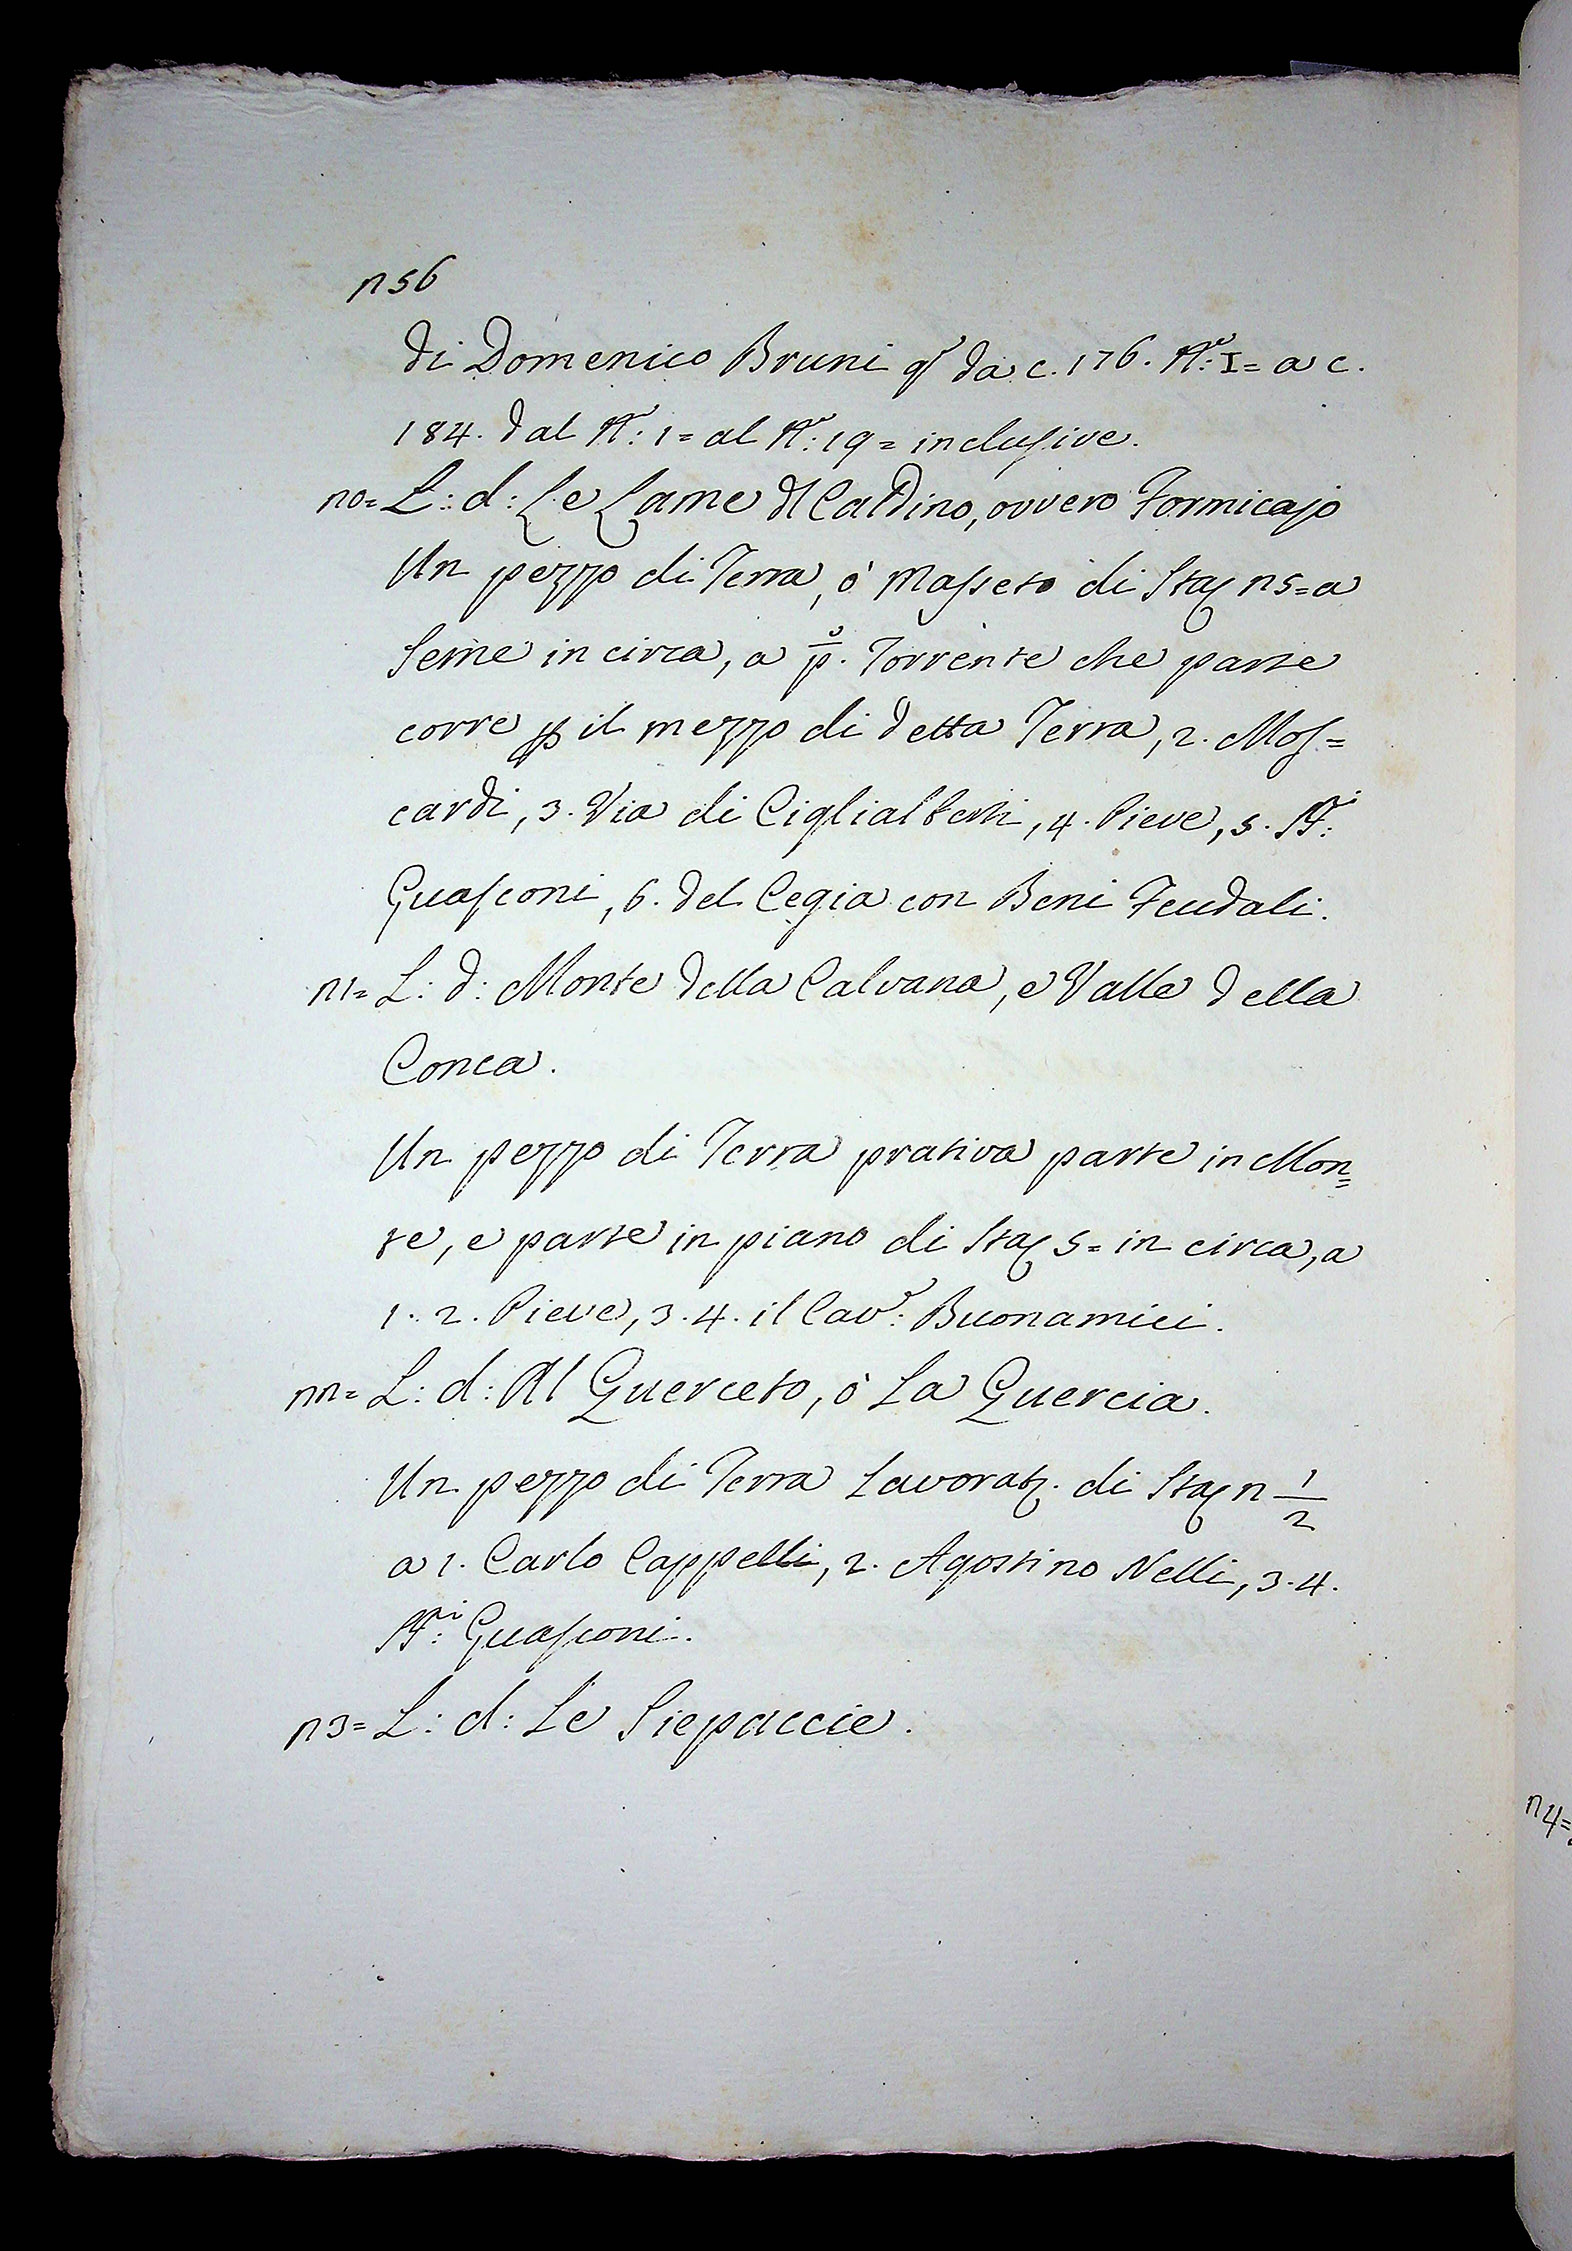 256
di Domenico Bruni qᵗᵒ da c. 176. Nº: I= a c.
184. dal Nº: 1= al Nº: 19= inclusive.
20= L: d: Le Lame di Caldino, ovvero Formicajo
Un pezzo di Terra, ò Masseto di Staᵃ 25= a
Seme in circa, a pº. Torrente che parte
corre p il mezzo di detta Terra, 2. Mos=
cardi, 3. Via di Ciglialberti, 4. Pieve, 5. SSⁱ:
Guasconi, 6. del Cegia con Beni Feudali.
21= L: d: Monte della Calvana, e Valle della
Conca.
Un pezzo di Terra prativa parte in Mon=
te, e parte in piano di Staᵃ 5= in circa, a
1. 2. Pieve, 3. 4. il Cavʳ: Buonamici.
22= L: d: Al Querceto, ò La Quercia.
Un pezzo di Terra Lavorat. di Staᵃ 2 1/2
a 1. Carlo Cappelli, 2. Agostino Nelli, 3. 4.
SSⁱ: Guasconi.
23= L: d: Le Siepaccie.
24=